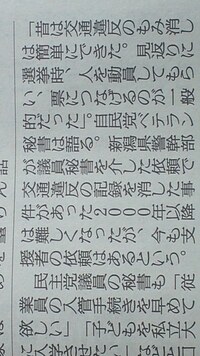 「昔は交通違反のもみ消し
は簡単にできた。見返りに
選挙時、人を動員してもら
い、票につなげるのが一般
的だった」。自民党ベテラン
秘書は語る。新潟県警幹部
が議員秘書を介した依頼で
交通違反の記録を消した事
件があった2000年以降
は難しくなったが、今も支
援者の依頼はあるという。
民主党議員の秘書も「従
業員の入管手続きを早めて
欲しい」「子どもを私立大
に入学させたい」